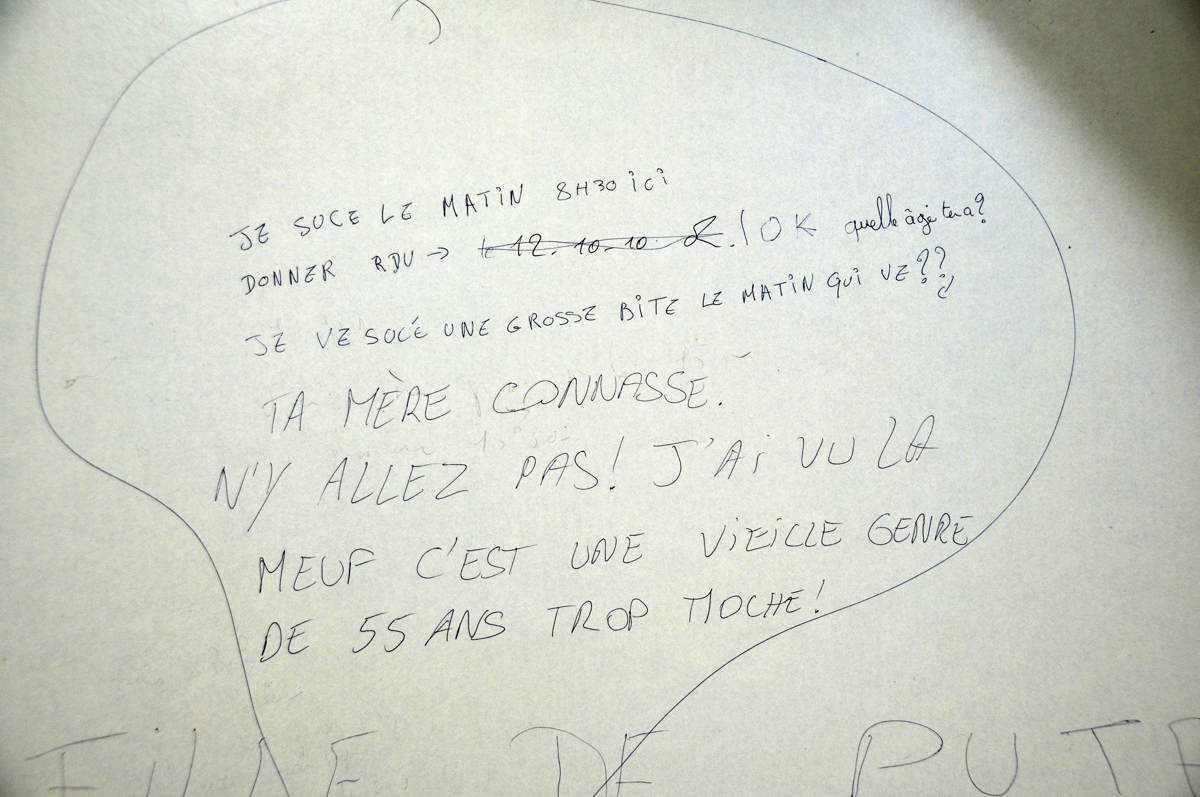 JE SUCE LE MATIN 8H30 ici
DONNER RDV → 12.10.10. OK quelle âge tu a?
JE VE SUCÉ UNE GROSSE BITE LE MATIN QUI VE??
TA MÈRE CONNASSE.
N'Y ALLEZ PAS! J'Ai VU LA
MEUF C'EST UNE VIEILLE GENRE
DE 55 ANS TROP MOCHE!
FILLE DE PUTE